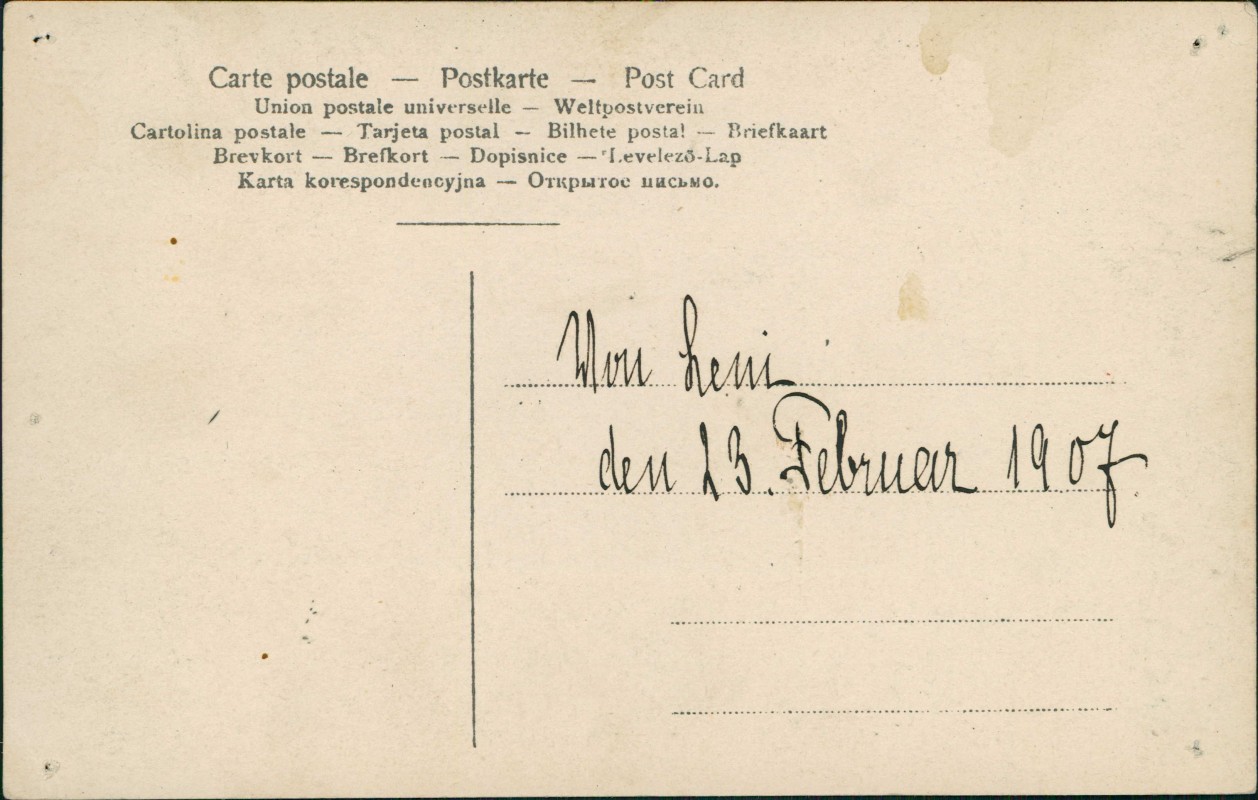 Carte postale — Postkarte — Post Card
Union postale universelle — Weltpostverein
Cartolina postale — Tarjeta postal — Bilhete postal — Briefkaart
Brevkort — Brefkort — Dopisnice — Levelező-Lap
Karta korespondencyjna — Открытое письмо.
Von Leni
den 23. Februar 1907